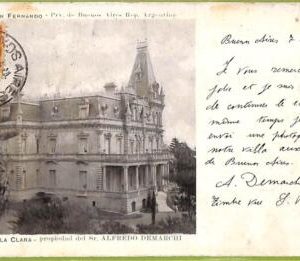 N FERNANDO - Prv. de Buenos Aires Rep. Argentina
OS AIRES
LA CLARA - propiedad del Sr. ALFREDO DEMARCHI
Buenos Aires 7
Je vous remer
jolie et je suis
de continuer le
même temps je
envoi une photog
notre villa aux
de Buenos Aires.
A. Demarchi
Timbre vue